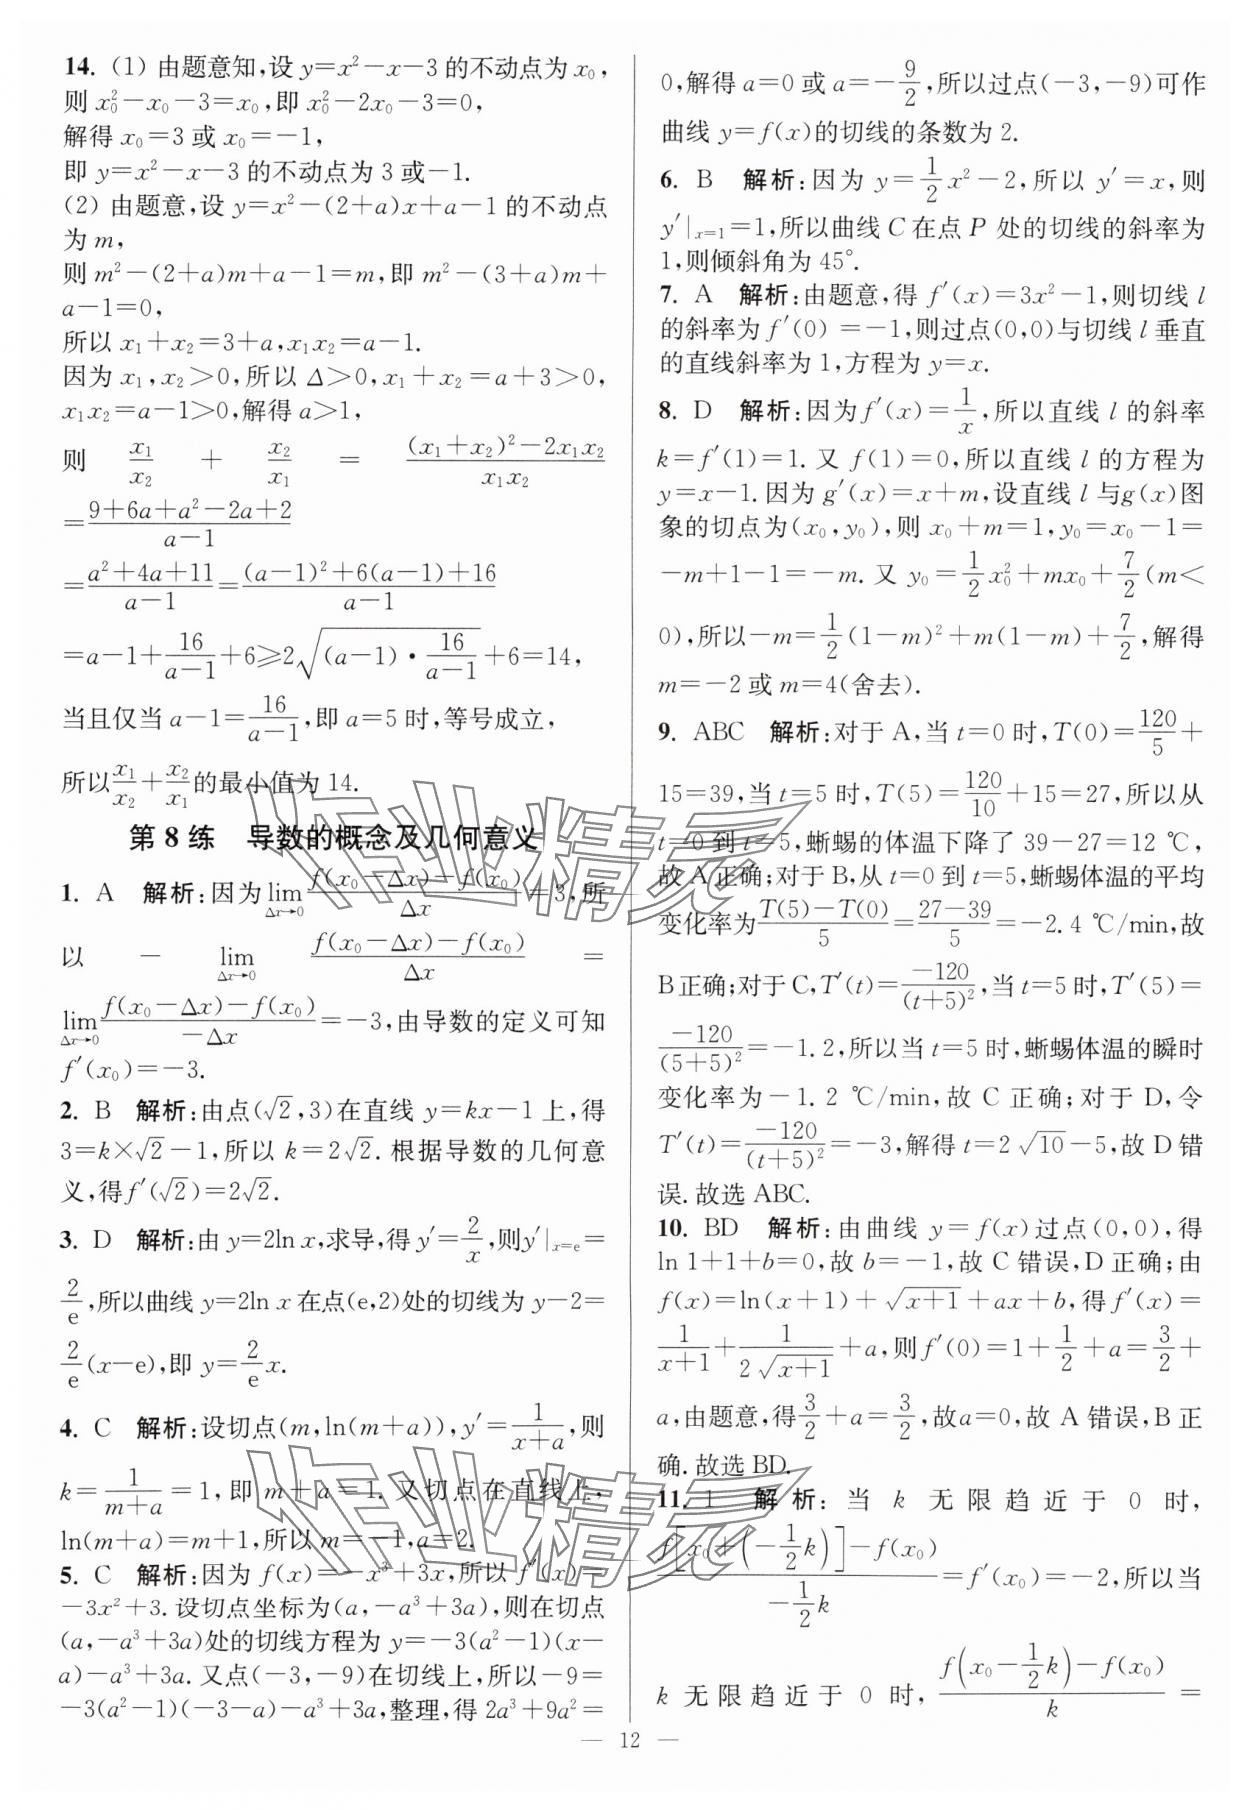 14. (1) 由题意知,设 y=x²-x-3 的不动点为 x₀,
则 x₀²-x₀-3=x₀,即 x₀²-2x₀-3=0,
解得 x₀=3 或 x₀=-1,
即 y=x²-x-3 的不动点为 3 或-1.
(2) 由题意,设 y=x²-(2+a)x+a-1 的不动点
为 m,
则 m²-(2+a)m+a-1=m,即 m²-(3+a)m+
a-1=0,
所以 x₁+x₂=3+a,x₁x₂=a-1.
因为 x₁,x₂>0,所以 Δ>0,x₁+x₂=a+3>0,
x₁x₂=a-1>0,解得 a>1,
则 x₁/x₂ + x₂/x₁ = ((x₁+x₂)²-2x₁x₂)/(x₁x₂)
=(9+6a+a²-2a+2)/(a-1)
=(a²+4a+11)/(a-1)=((a-1)²+6(a-1)+16)/(a-1)
=a-1+16/(a-1)+6≥2√((a-1)·16/(a-1))+6=14,
当且仅当 a-1=16/(a-1),即 a=5 时,等号成立,
所以x₁/x₂+x₂/x₁的最小值为 14.
第 8 练 导数的概念及几何意义
1. A 解析:因为lim(Δx→0) (f(x₀-Δx)-f(x₀))/Δx=3,所
以 - lim(Δx→0) (f(x₀-Δx)-f(x₀))/Δx =
lim(Δx→0) (f(x₀-Δx)-f(x₀))/(-Δx)=-3,由导数的定义可知
f′(x₀)=-3.
2. B 解析:由点(√2,3)在直线 y=kx-1 上,得
3=k×√2-1,所以 k=2√2. 根据导数的几何意
义,得f′(√2)=2√2.
3. D 解析:由 y=2ln x,求导,得 y′=2/x,则y′|ₓ₌ₑ=
2/e,所以曲线 y=2ln x 在点(e,2)处的切线为 y-2=
2/e(x-e),即 y=2/e x.
4. C 解析:设切点(m,ln(m+a)),y′=1/(x+a),则
k=1/(m+a)=1,即 m+a=1. 又切点在直线上,
ln(m+a)=m+1,所以 m=-1,a=2.
5. C 解析:因为 f(x)=-x³+3x,所以 f′(x)=
-3x²+3. 设切点坐标为(a,-a³+3a),则在切点
(a,-a³+3a)处的切线方程为 y=-3(a²-1)(x-
a)-a³+3a. 又点(-3,-9)在切线上,所以-9=
-3(a²-1)(-3-a)-a³+3a,整理,得 2a³+9a²=
0,解得 a=0 或 a=-9/2,所以过点(-3,-9)可作
曲线 y=f(x)的切线的条数为 2.
6. B 解析:因为 y=1/2 x²-2,所以 y′=x,则
y′|ₓ₌₁=1,所以曲线 C 在点 P 处的切线的斜率为
1,则倾斜角为 45°.
7. A 解析:由题意,得 f′(x)=3x²-1,则切线 l
的斜率为 f′(0)=-1,则过点(0,0)与切线 l 垂直
的直线斜率为 1,方程为 y=x.
8. D 解析:因为f′(x)=1/x,所以直线 l 的斜率
k=f′(1)=1. 又 f(1)=0,所以直线 l 的方程为
y=x-1. 因为 g′(x)=x+m,设直线 l 与g(x)图
象的切点为(x₀,y₀),则 x₀+m=1,y₀=x₀-1=
-m+1-1=-m. 又 y₀=1/2 x₀²+mx₀+7/2(m<
0),所以-m=1/2(1-m)²+m(1-m)+7/2,解得
m=-2 或 m=4(舍去).
9. ABC 解析:对于 A,当 t=0 时,T(0)=120/5+
15=39,当 t=5 时,T(5)=120/10+15=27,所以从
t=0 到 t=5,蜥蜴的体温下降了 39-27=12 ℃,
故 A 正确;对于 B,从 t=0 到 t=5,蜥蜴体温的平均
变化率为(T(5)-T(0))/5=(27-39)/5=-2.4 ℃/min,故
B 正确;对于 C,T′(t)=-120/(t+5)²,当 t=5 时,T′(5)=
-120/(5+5)²=-1.2,所以当 t=5 时,蜥蜴体温的瞬时
变化率为-1.2 ℃/min,故 C 正确;对于 D,令
T′(t)=-120/(t+5)²=-3,解得 t=2√10-5,故 D 错
误. 故选 ABC.
10. BD 解析:由曲线 y=f(x)过点(0,0),得
ln 1+1+b=0,故 b=-1,故 C 错误,D 正确;由
f(x)=ln(x+1)+√(x+1)+ax+b,得 f′(x)=
1/(x+1)+1/(2√(x+1))+a,则 f′(0)=1+1/2+a=3/2+
a,由题意,得3/2+a=3/2,故a=0,故 A 错误,B 正
确. 故选 BD.
11. 1 解析:当 k 无限趋近于 0 时,
f[x₀+(-1/2 k)]-f(x₀)/(-1/2 k)=f′(x₀)=-2,所以当
k 无限趋近于 0 时,(f(x₀-1/2 k)-f(x₀))/k =
— 12 —
作业精灵
作业精灵